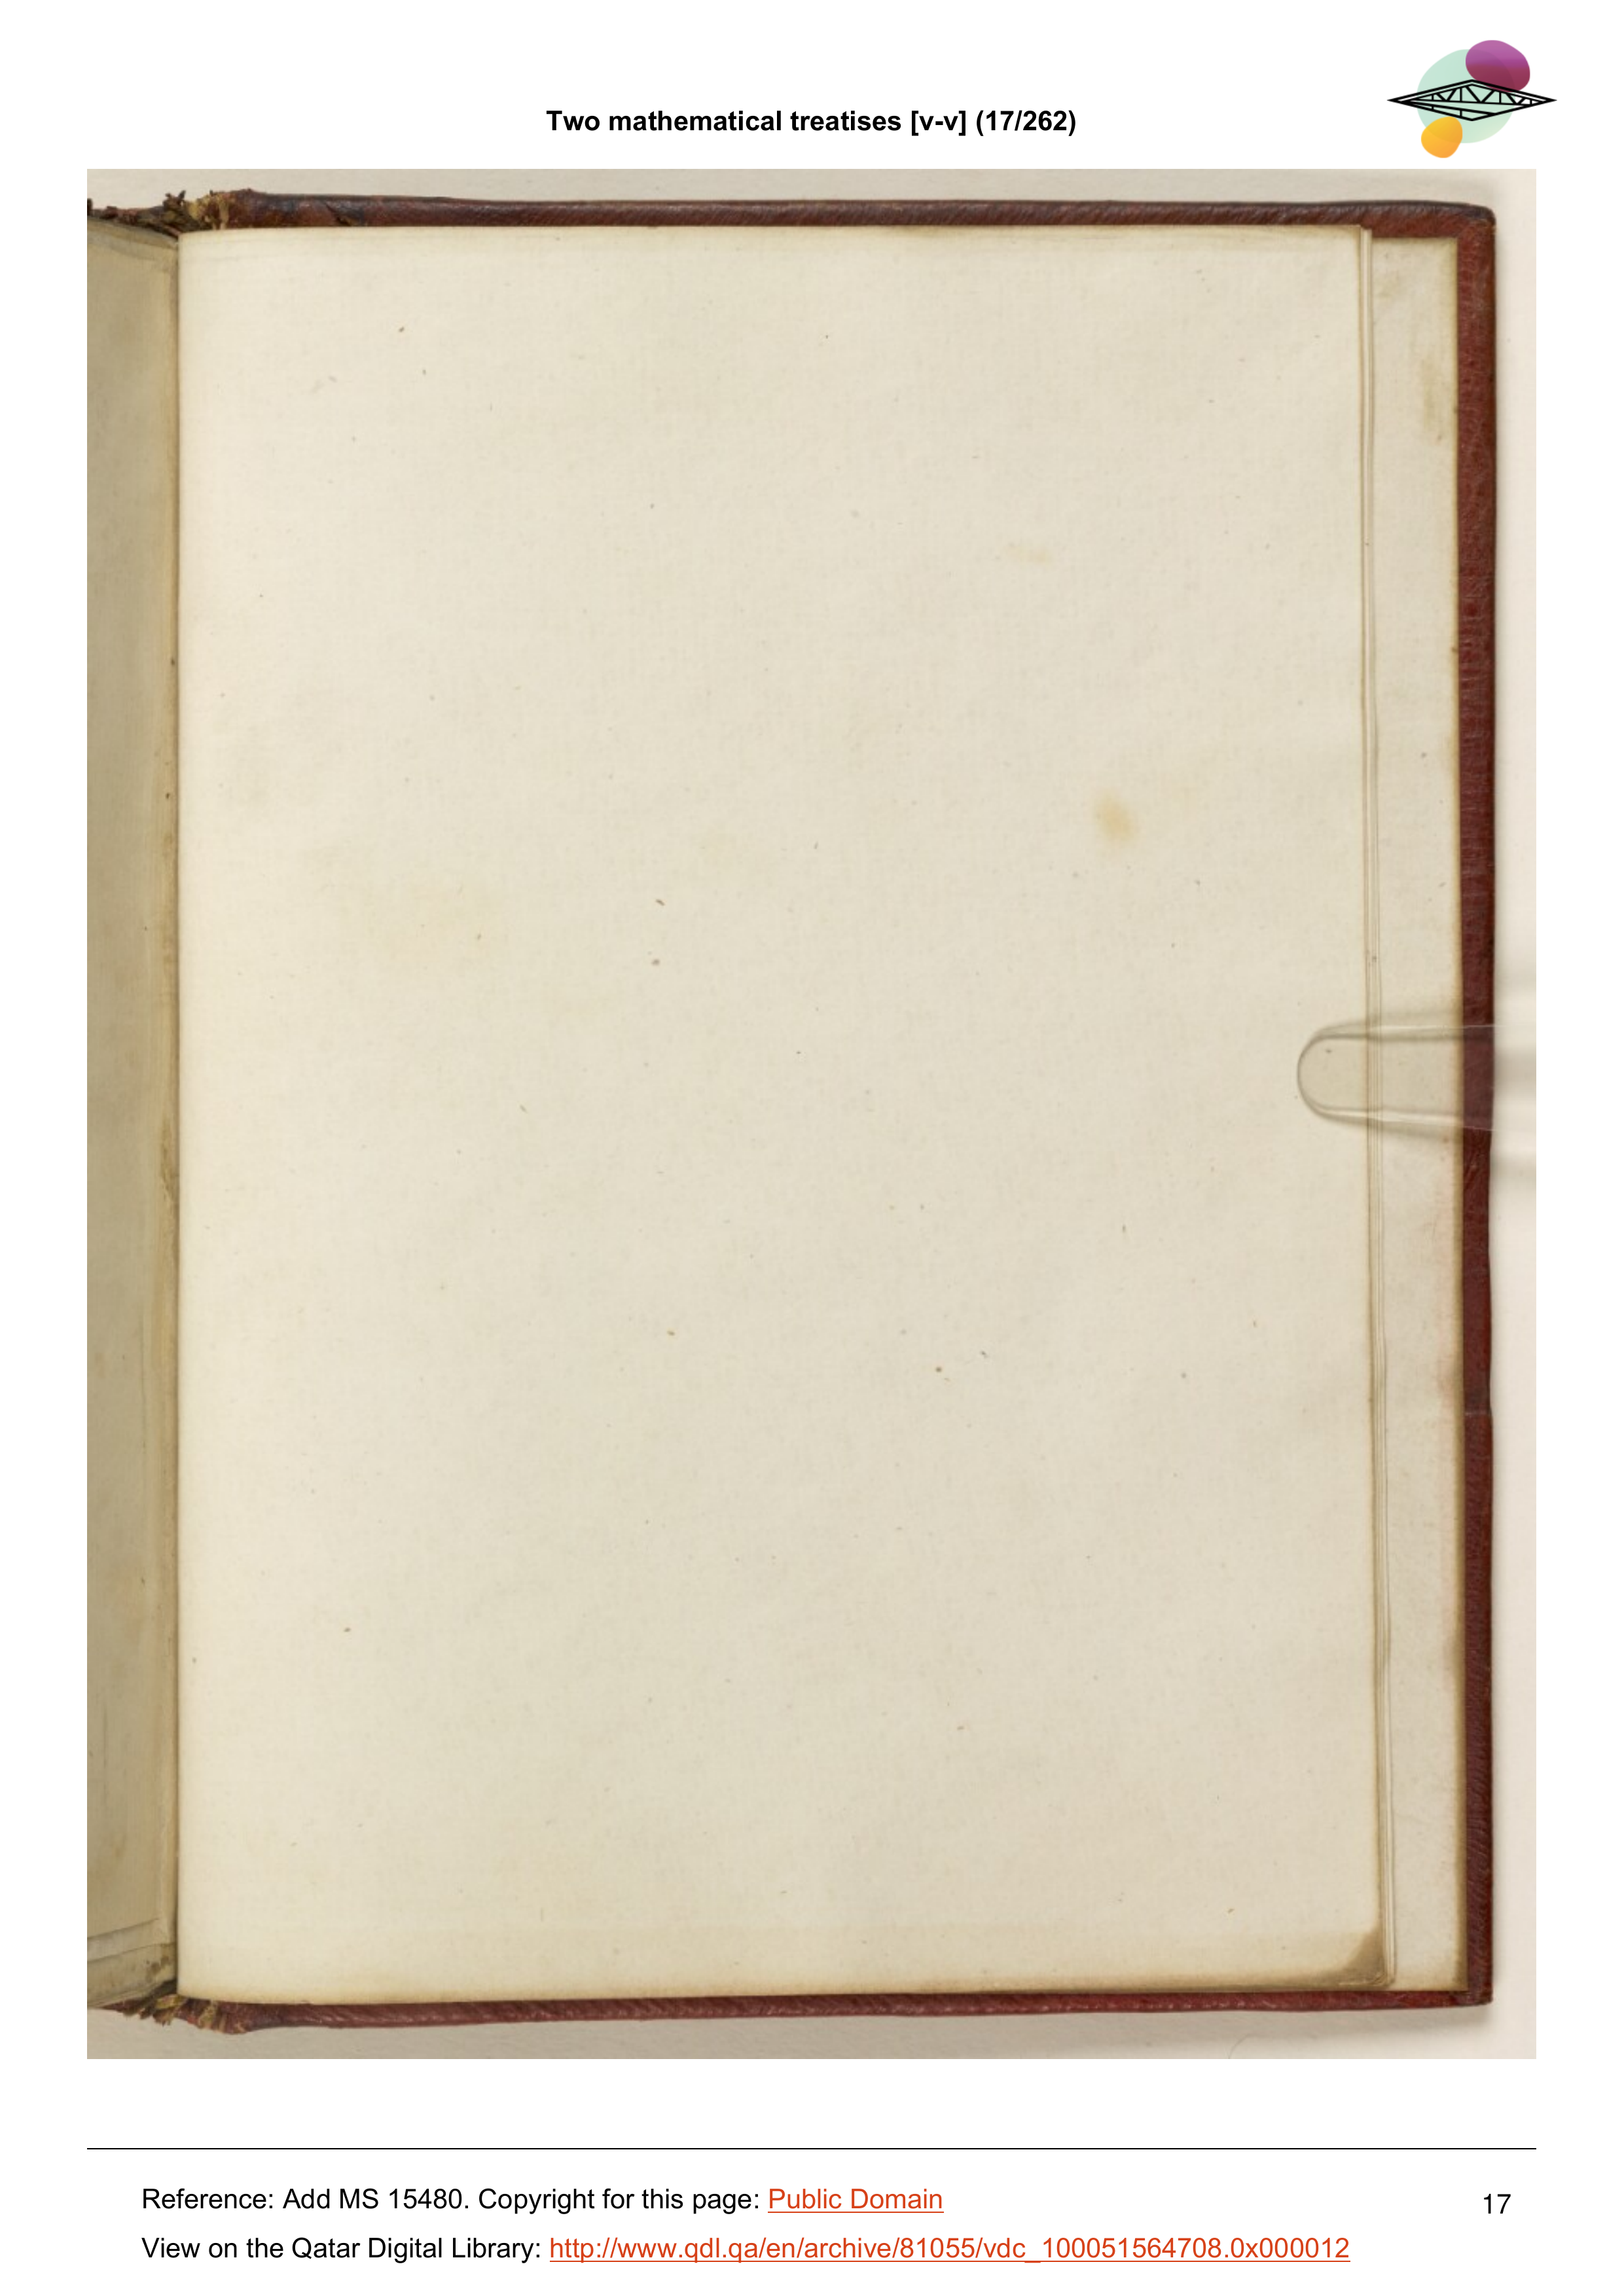 Two mathematical treatises [v-v] (17/262)
Reference: Add MS 15480. Copyright for this page: Public Domain
17
View on the Qatar Digital Library: http://www.qdl.qa/en/archive/81055/vdc_100051564708.0x000012